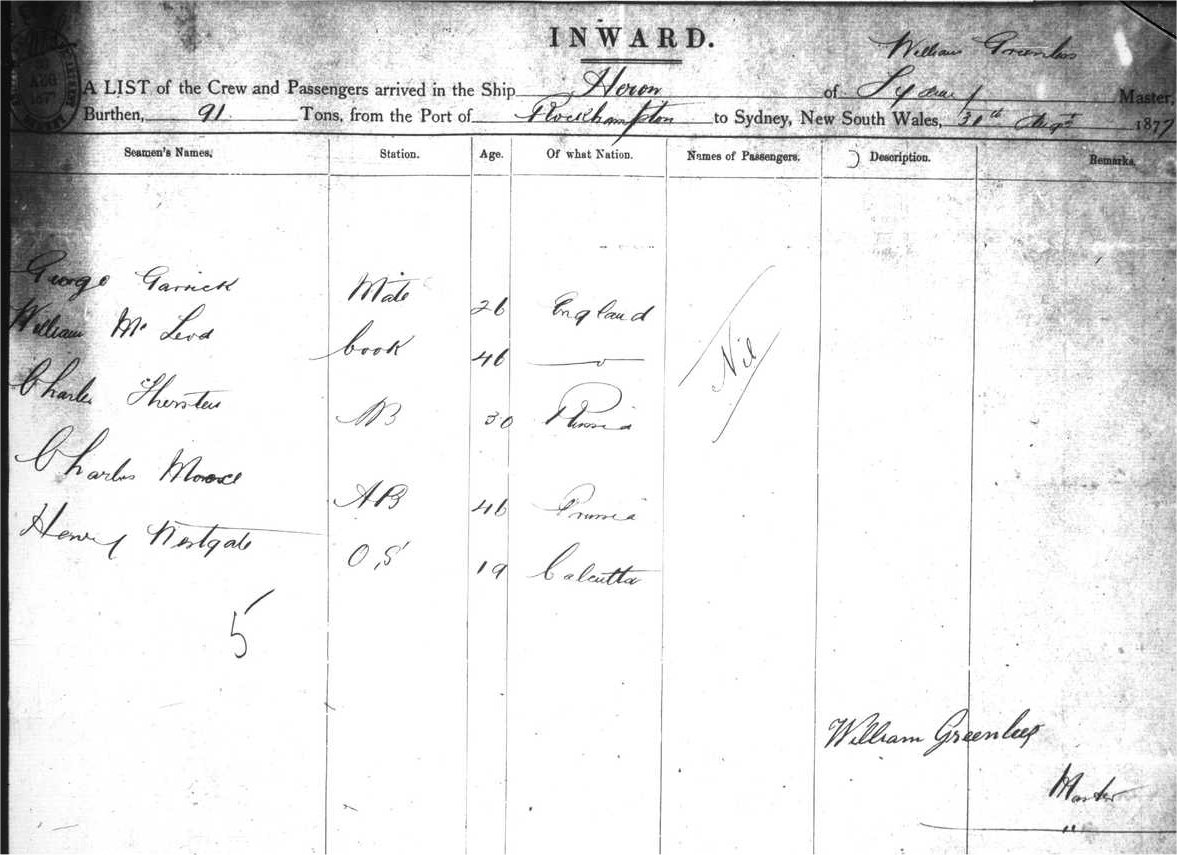 INWARD.
William Greenlees
A LIST of the Crew and Passengers arrived in the Ship Heron of Sydney Master,
Burthen, 91 Tons, from the Port of Rockhampton to Sydney, New South Wales, 31th Augst 1877
Seamen's Names. Station. Age. Of what Nation. Names of Passengers. Description. Remarks.
George Garrick Mate 26 England
William Mc Leod Cook 46 —〃—
Charles AB 30
Nil
Charles Moore AB 46 Prussia
Henry Westgate O.S 19 Calcutta
5
William Greenlees
Master